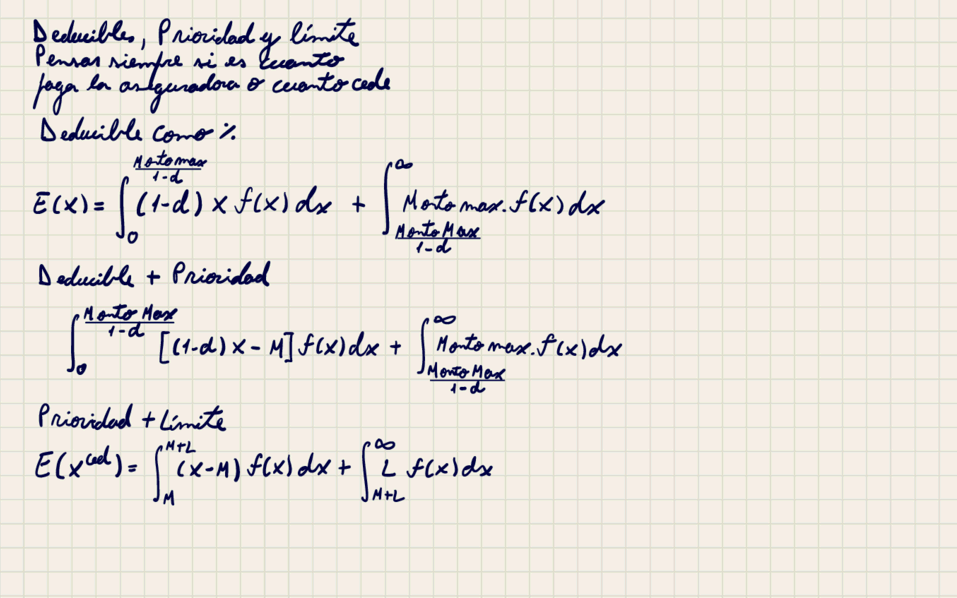 Deducibles, Prioridad y límite
Pensar siempre si es cuanto
paga la aseguradora o cuanto cede
Deducible como %
E(x) = ∫_0^{Monto max / 1-d} (1-d) x f(x) dx + ∫_{Monto Max / 1-d}^∞ Monto max. f(x) dx
Deducible + Prioridad
∫_0^{Monto Max / 1-d} [(1-d) x - M] f(x) dx + ∫_{Monto Max / 1-d}^∞ Monto max. f(x) dx
Prioridad + Límite
E(x^{ced}) = ∫_M^{M+L} (x-M) f(x) dx + ∫_{M+L}^∞ L f(x) dx